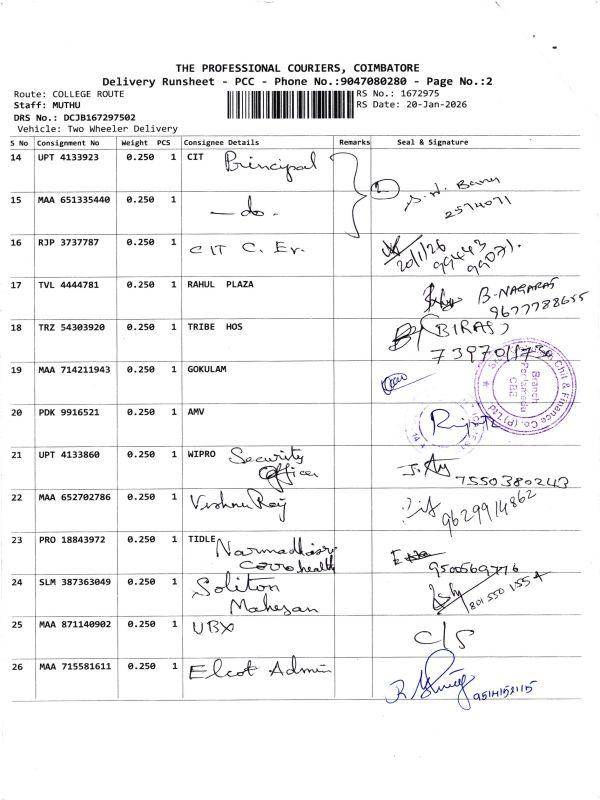 THE PROFESSIONAL COURIERS, COIMBATORE
Delivery Runsheet - PCC - Phone No.:9047080280 - Page No.:2
Route: COLLEGE ROUTE
RS No.: 1672975
Staff: MUTHU
RS Date: 20-Jan-2026
DRS No.: DCJB167297502
Vehicle: Two Wheeler Delivery
S No Consignment No Weight PCS Consignee Details Remarks Seal & Signature
14 UPT 4133923 0.250 1 CIT Principal
15 MAA 651335440 0.250 1 —do—
2574071
16 RJP 3737787 0.250 1 CIT C. Er.
20/1/26
99443
99071
17 TVL 4444781 0.250 1 RAHUL PLAZA B-NAGARAJ
9677788655
18 TRZ 54303920 0.250 1 TRIBE HOS BIRAS
19 MAA 714211943 0.250 1 GOKULAM
Chit & Finance Co. (P) Ltd
Branch
CBE
20 PDK 9916521 0.250 1 AMV
21 UPT 4133860 0.250 1 WIPRO Security
Officer
7550380243
22 MAA 652702786 0.250 1 Vishnu Raj
9629914862
23 PRO 18843972 0.250 1 TIDLE Narmadha
health
9500569776
24 SLM 387363049 0.250 1 Soliton
Mahesan
801 550 1554
25 MAA 871140902 0.250 1 UBX C/S
26 MAA 715581611 0.250 1 Elcot Admin